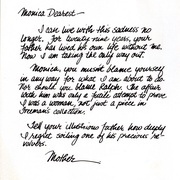 Monica Dearest —
I can live with this sadness no
longer. For twenty nine years, your
father has lived his own life without me.
Now I am taking the only way out.
Monica, you mustn't blame yourself
in any way for what I am about to do.
Nor should you blame Ralph. The affair
with him was only a futile attempt to prove
I was a woman, not just a piece in
Freeman's collection.
Tell your illustrious father how deeply
I regret soiling one of his precious re-
volvers.
Mother